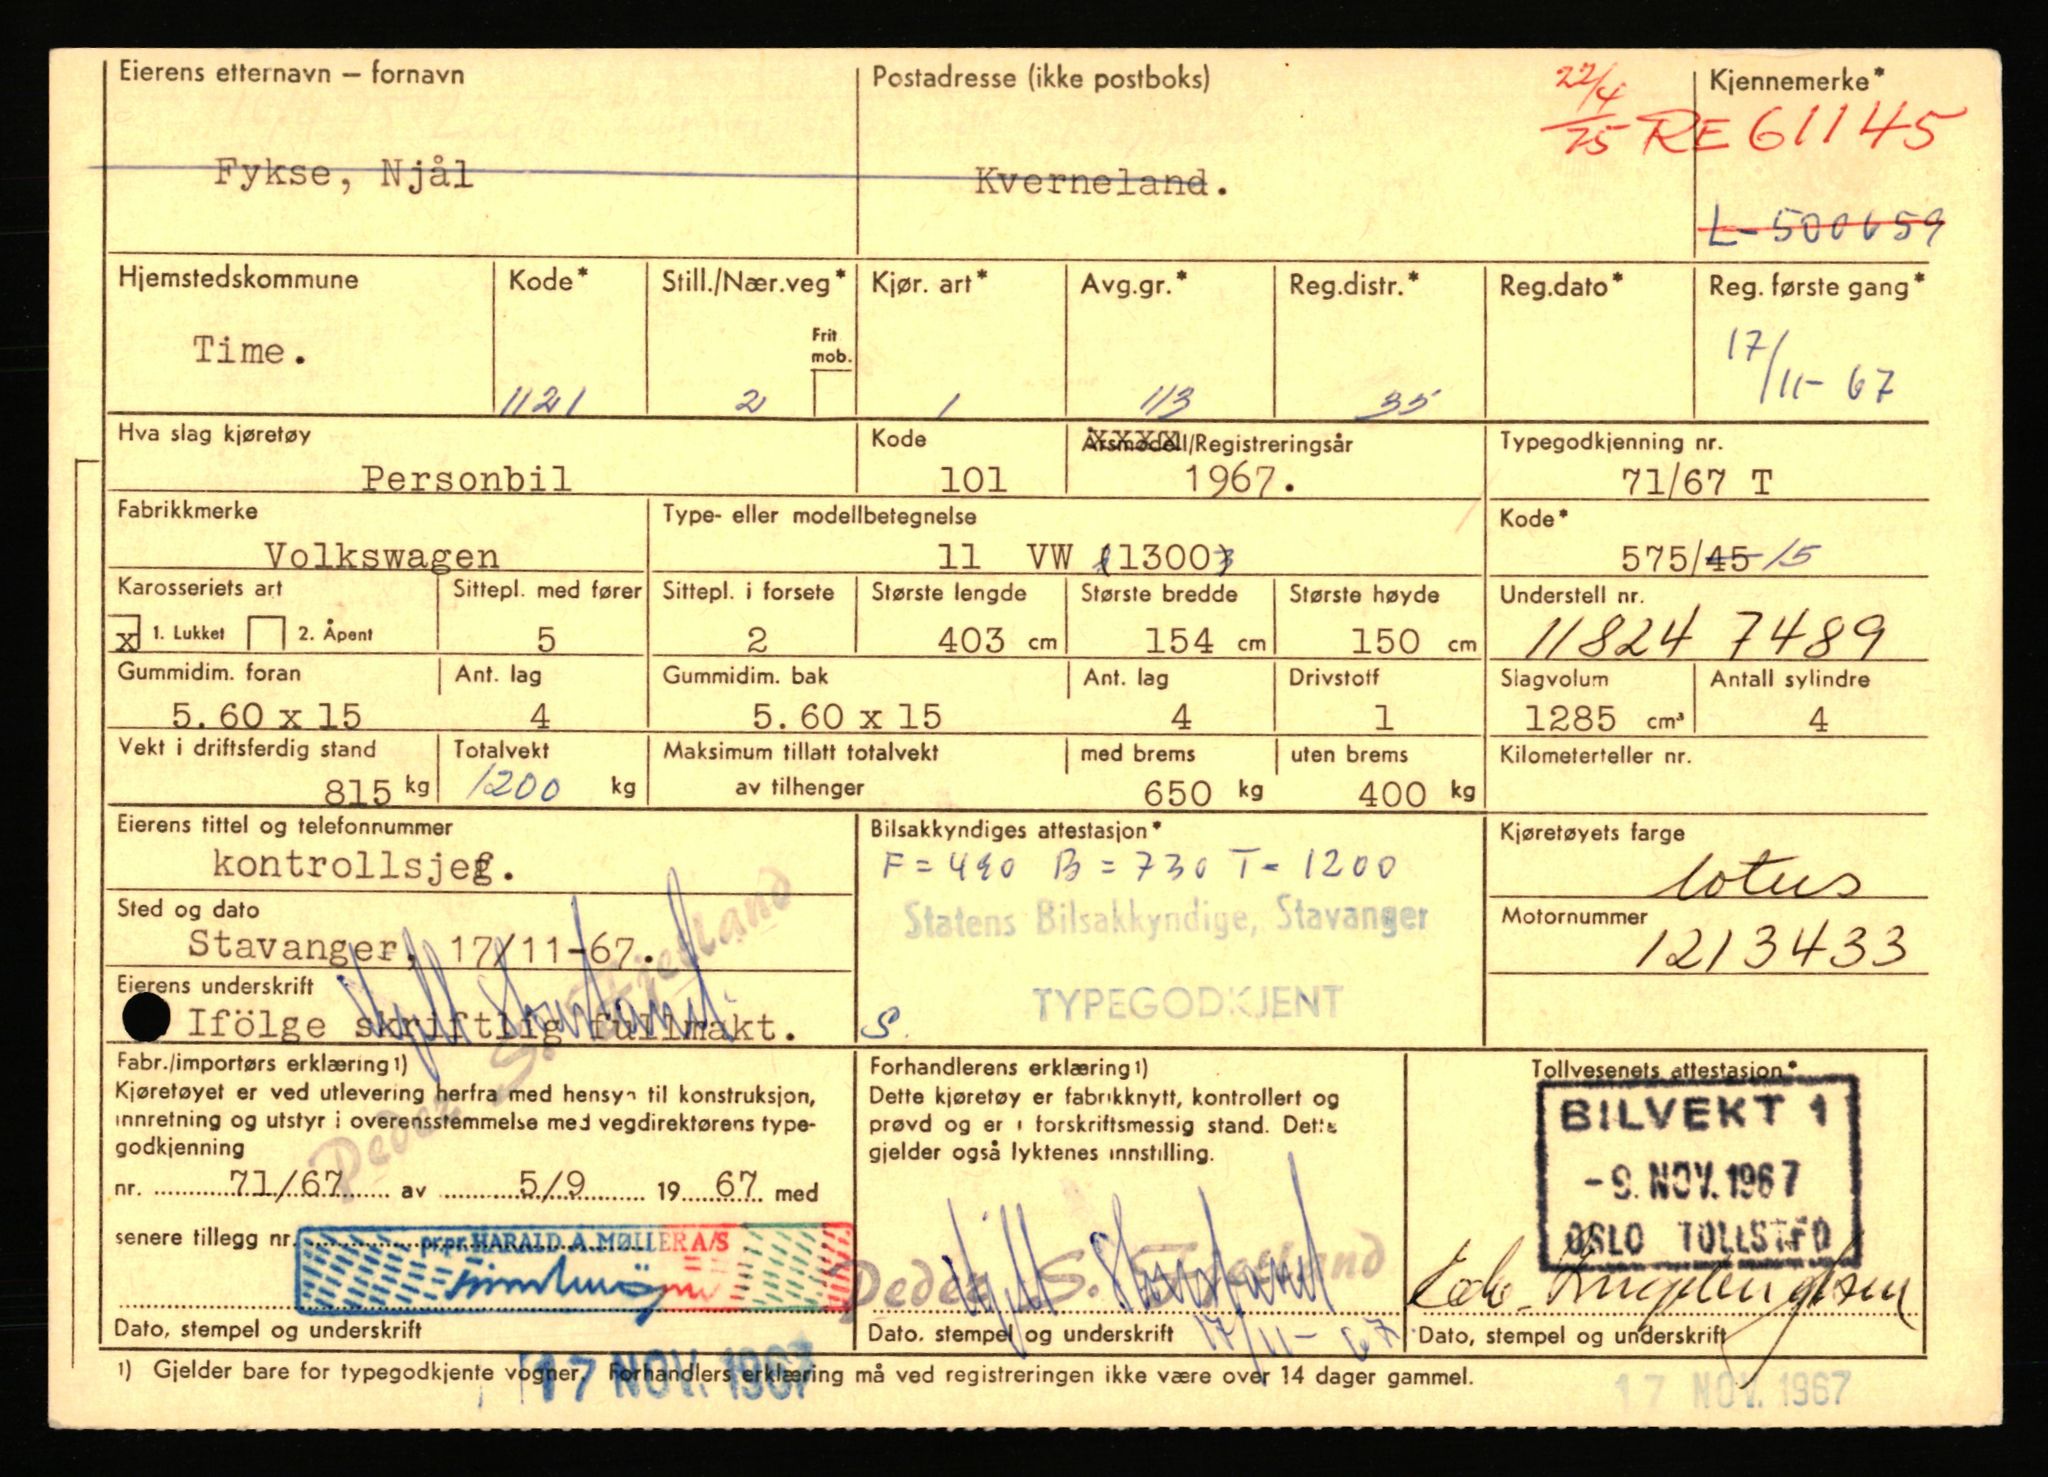 Eierens etternavn – fornavn
Postadresse (ikke postboks)
22/4
75
Kjennemerke*
RE 61145
Fykse, Njål
Kverneland.
L-500659
Hjemstedskommune
Kode*
Still./Nær.veg*
Kjør. art*
Avg.gr.*
Reg.distr.*
Reg.dato*
Reg. første gang*
Time.
Frit
mob.
17/11-67
1121
2
1
113
35
Hva slag kjøretøy
Kode
Årsmodell/Registreringsår
Typegodkjenning nr.
Personbil
101
1967.
71/67 T
Fabrikkmerke
Type- eller modellbetegnelse
Kode*
Volkswagen
11 VW 1300
575/45 15
Karosseriets art
Sittepl. med fører
Sittepl. i forsete
Største lengde
Største bredde
Største høyde
Understell nr.
x 1. Lukket
2. Åpent
5
2
403 cm
154 cm
150 cm
11824 7489
Gummidim. foran
Ant. lag
Gummidim. bak
Ant. lag
Drivstoff
Slagvolum
Antall sylindre
5.60 x 15
4
5.60 x 15
4
1
1285 cm³
4
Vekt i driftsferdig stand
Totalvekt
Maksimum tillatt totalvekt
med brems
uten brems
Kilometerteller nr.
815 kg
1200 kg
av tilhenger
650 kg
400 kg
Eierens tittel og telefonnummer
Bilsakkyndiges attestasjon*
Kjøretøyets farge
kontrollsjef.
F = 490 B = 730 T = 1200
lotus
Sted og dato
Statens Bilsakkyndige, Stavanger
Motornummer
Stavanger, 17/11-67.
1213433
Eierens underskrift
TYPEGODKJENT
Ifölge skriftlig fullmakt.
S.
Peder S. Fjetland
Fabr./importørs erklæring 1)
Forhandlerens erklæring 1)
Tollvesenets attestasjon*
Kjøretøyet er ved utlevering herfra med hensyn til konstruksjon,
innretning og utstyr i overensstemmelse med vegdirektørens type-
godkjenning
nr. 71/67 av 5/9 1967 med
senere tillegg nr.
Dette kjøretøy er fabrikknytt, kontrollert og
prøvd og er i forskriftsmessig stand. Dette
gjelder også lyktenes innstilling.
BILVEKT 1
-9. NOV. 1967
OSLO TOLLSTED
pr.pr. HARALD A. MØLLER A/S
Peder S. Fjetland
Dato, stempel og underskrift
Dato, stempel og underskrift
17/11-67
Dato, stempel og underskrift
1) Gjelder bare for typegodkjente vogner. Forhandlers erklæring må ved registreringen ikke være over 14 dager gammel.
17 NOV. 1967
17 NOV. 1967